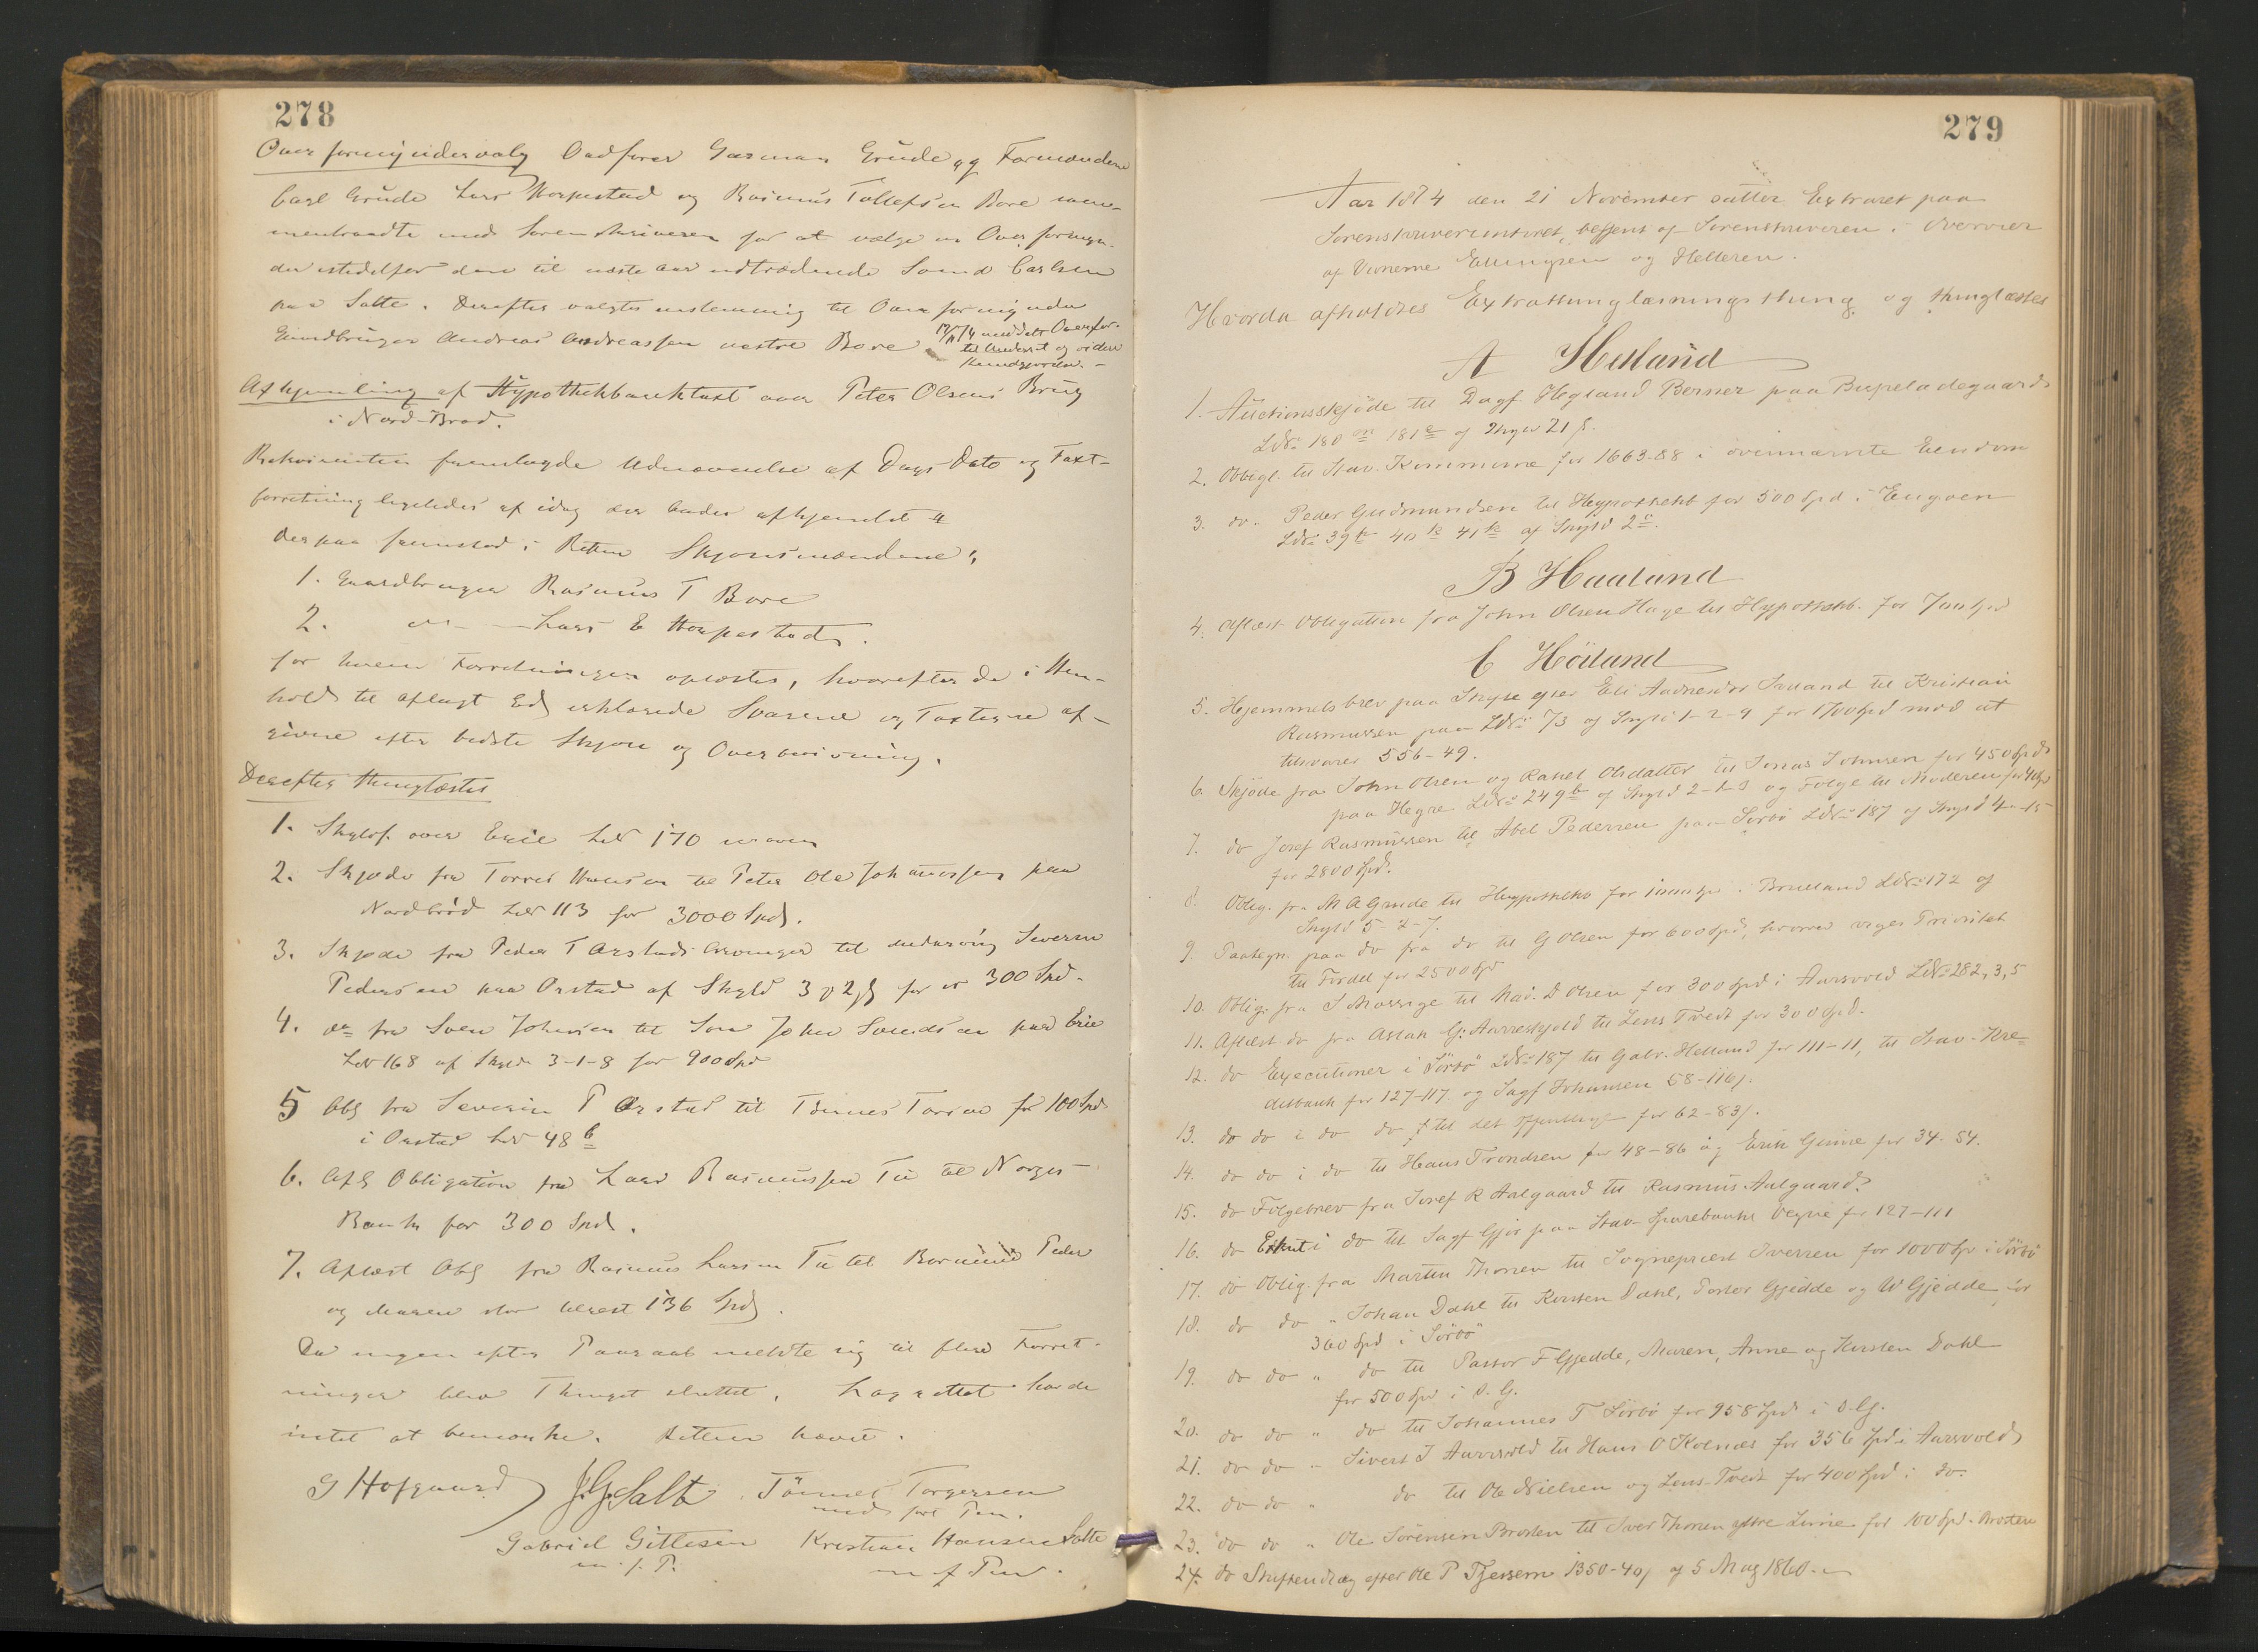 278
Overformyndervalg Ordfører Gasman Grude og Formændene
Carl Grude Lars Horpestad og Rasmus Tollefsen Bore sam-
mentraadte med Sorenskriveren for at vælge en Overformyn-
der istedetfor den til næste Aar udtrædende Svend Carlsen
paa Salte. Derefter valgtes enstemmig til Overformynder
Gaardbruger Andreas Andreassen nestre Bore
meddelt Overfor.
til Underret og videre
Kundgjørelse.
Afhjemling af Hypothekbanktaxt over Peter Olsens Brug
i Nord-Brød.
Rekvirenten fremlagde Udnævnelse af Dags Dato og Taxt-
forretning ligeledes af idag der bades afhjemlet
derpaa fremstod i Retten Skjønsmændene:
1. Gaardbruger Rasmus T Bore
2. do Lars E Horpestad.
for hvem Forretningen oplæstes, hvorefter de i Hen-
hold til aflagt Ed erklærede Svarene og Taxterne af-
givne efter bedste Skjøn og Overbevisning.
Derefter thinglæstes
1. Skylsf. over Erie LNo 170
2. Skjøde fra Torres Hansen til Peter Ole Johannessen paa
Nordbrød LNo 113 for 3000 Spd.
3. Skjøde fra Peder T Orstads Arvinger til Severin
Pedersen paa Orstad af Skyld 3 2 for 300 Spd.
4. do fra Sven Johnsen til Søn John Svendsen paa Erie
LNo 168 af Skyld 3-1-8 for 900 Spd
5 Obl fra Severin P Orstad til Tønnes for 100 Spd
i Orstad LNo 48 b
6. Afl Obligation fra Lars Rasmussen Tu til Norges
Bank for 300 Spd.
7. Aflæst Obl fra Rasmus Larsen Tu til Peder
og Maren 136 Spd.
Da ingen efter Paaraab meldte sig til flere Forret-
ninger blev Thinget sluttet. Lagrettet havde
intet at bemærke. Retten hævet.
G Hofgaard J.G.Salte Tönnes Torgersen
med ført Pen.
Gabriel Gitlesen Kristian Hansen Salte
m. f. P. m f Pen.
279
Aar 1874 den 21 November sattes Extraret paa
Sorenskriverkontoret, betjent af Sorenskriveren i Overvær
af Vidnerne Ellingsen og Helleren.
Hvorda afholdtes Extrathinglæsningsthing og thinglæstes
A Hetland
1. Auctionsskjöde til Dagf. Hegland Berner paa Bispeladegaard
LNo 180 181 af Skyld 21
2. Obligt. til Stav. Kommune for 1663-88 i ovennævnte Eiendom
3. do. Peder Gudmundsen til Hypothekb for 500 Spd i Engøen
LNo 39 40 41 af Skyld 2
B Haaland
4. Aflæst Obligation fra John Olsen Hage til Hypothekb. for 700 Spd
C Höiland
5. Hjemmelsbrev paa Skifte efter Eli til Kristian
Rasmussen paa LNo 73 af Skyld 1-2-9 for 1700 Spd mod at
tilsvarer 556-49.
6. Skjöde fra John Olsen og Rakel Olsdatter til Jonas Johnsen for 450 Spd
paa Hegre LNo 249 b af Skyld 2-1-3 og Folge til Moderen for 40 Spd
7. do Josef Rasmussen til Abel Pedersen paa Sørbø LNo 187 af Skyld 4-15
for 2800 Spd.
8. Oblig. fra M A Grude til Hypothekb for 1000 Spd i Brueland LNo 172 af
Skyld 5-4-7.
9. Paategn. paa do fra do til G Olsen for 600 Spd, hvorved viges Prioritet
til Fordel for 2500 Spd
10. Oblig. fra S Mossige til Mad. D Olsen for 300 Spd i Aarsvold LNo 282, 3, 5
11. Aflæst do fra Aslak G. til Lens Tvedt for 300 Spd.
12. do Executioner i Sörbö LNo 187 til Gabr. Helland for 111-11, til Stav. Kre-
ditbank for 127-117 og Sagf Johannsen 58-116.
13. do do i do do til det Offentlige for 62-83.
14. do do i do til Hans Trondsen for 48-86 og Erik Grime for 34.54.
15. do Følgebrev fra Josef R Aalgaard til Rasmus Aalgaard.
16. do Exkut i do til Sagf Gjør paa Stav. Sparebanks Vegne for 127-111
17. do Oblig. fra Martin Thorsen til Sognepræst Iversen for 1000 Spd i Sörbö
18. do do " Johan Dahl til Kirsten Dahl, Pastor Gjedde og W Gjedde for
360 Spd i Sörbö
19. do do " do til Pastor F Gjedde, Maren, Anne og Kirsten Dahl
for 500 Spd i S. G.
20. do do " do til Johannes T Sörbö for 958 Spd i S. G.
21. do do " Sivert J Aarsvold til Hans O Kolnæs for 356 Spd i Aarsvold
22. do do " do til Ole Nielsen og Lens Tvedt for 400 Spd i do.
23. do do " Ole Sørensen Brosten til Iver Thorsen ytre Lima for 100 Spd i Brosten
24. do Skifteudlæg efter Ole P Tjessem 1350-40 af 5 Aug 1860.